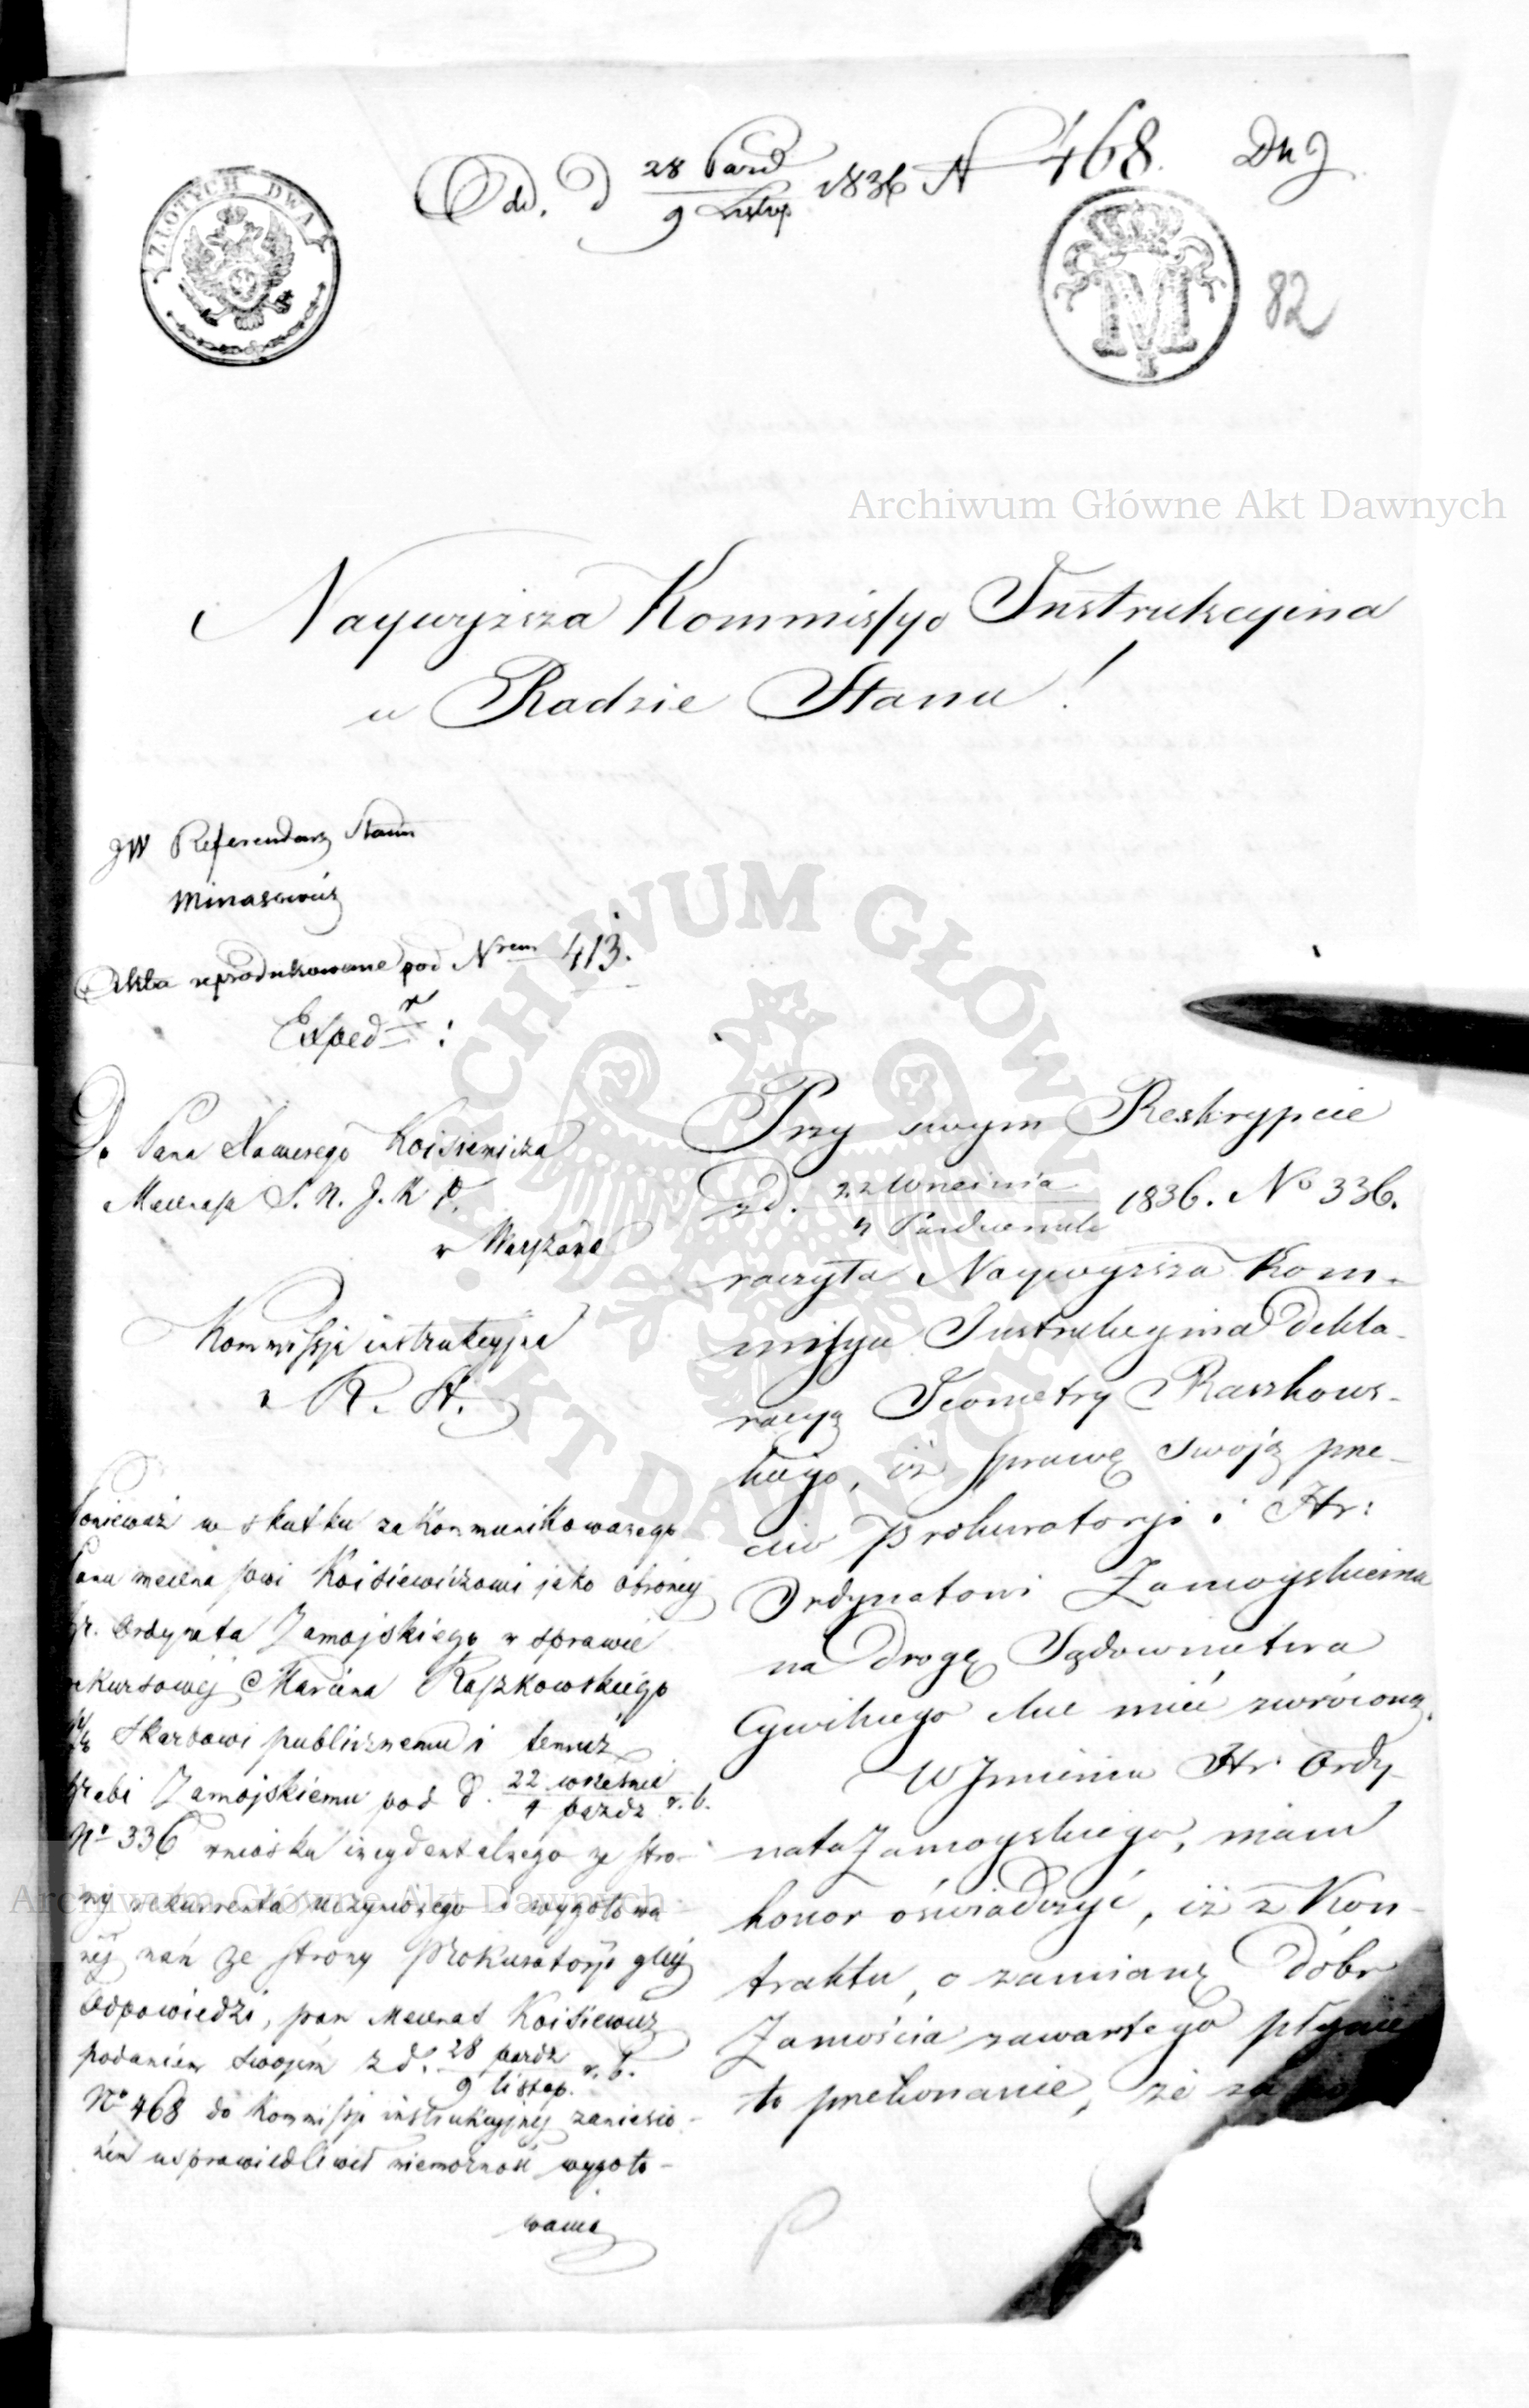 Od. d 28 Paźd / 9 Listop 1836 N 468. Dn J
ZŁOTYCH DWA
82
Archiwum Główne Akt Dawnych
Naywyższa Kommissyo Instrukcyina
w Radzie Stanu!
JW Referendarz Stanu
Minasowicz
Akta reprodukowane pod Nrem 413.
Exped:
Do Pana Xawerego Koisiewicza
Mecenasa S. N. J. K P.
w Warszawie
Kommissja instrukcyjna
w R. St.
Ponieważ w skutku zakommunikowanego
Panu mecenasowi Koisiewiczowi jako obrońcy
Hr. Ordynata Zamojskiego w sprawie
rekursowej Marcina Raszkowskiego
Skarbowi publicznemu i temuż
Hrabi Zamojskiemu pod d. 22 września / 4 paźdz r. b.
No 336 wniosku incydentalnego ze stro-
ny rekurrenta uczynionego i wygotowa
nej nań ze strony Prokuratorji glnej
Odpowiedzi, pan Mecenas Koisiewicz
podaniem swojem z d. 28 paźdz / 9 listop. r. b.
No 468 do Kommissji instrukcyjnej zaniesio-
nem usprawiedliwił niemożność wygoto-
wania
Przy swym Reskrypcie
z d. 22 Września / 4 Października 1836. No 336.
raczyła Naywyższa Kom-
missya Instrukcyina dekla-
racyą Jeometry Raszkows-
kiego, iż sprawę swoją prze-
ciw Prokuratorji i Hr:
Ordynatowi Zamoyskiemu
na drogę Sądownictwa
Cywilnego chce mieć zwróconą.
W Jmieniu Hr. Ordy-
nata Zamoyskiego, mam
honor oświadczyć, iż z Kon-
traktu, o zamianę dóbr
Zamościa zawartego płynie
to przekonanie, że